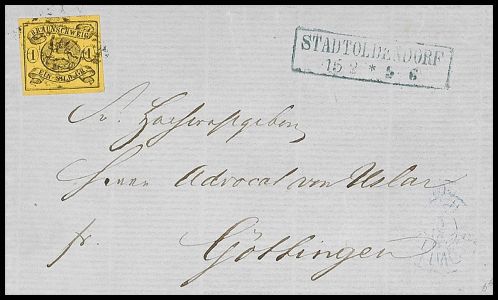 BRAUNSCHWEIG
1 1
EIN SILB. GR.
STADTOLDENDORF
15 2 * 5-6
Sr. Hochwohlgeboren
Herrn Advocat von Uslar
fr. Göttingen